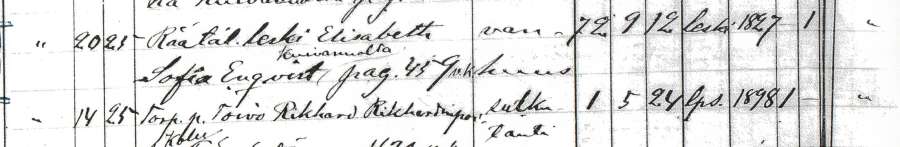 " 20 25 Räätäl. leski Elisabeth van- 72 9 12 Leski 1827 - 1 "
Kuivannolta
Sofia Enqvist, pag. 45 huus
" 14 25 Torp. p. Toivo Rikhard Rikhardinpoi. tulku- 1 5 24 lps. 1898 1 - "
tauti